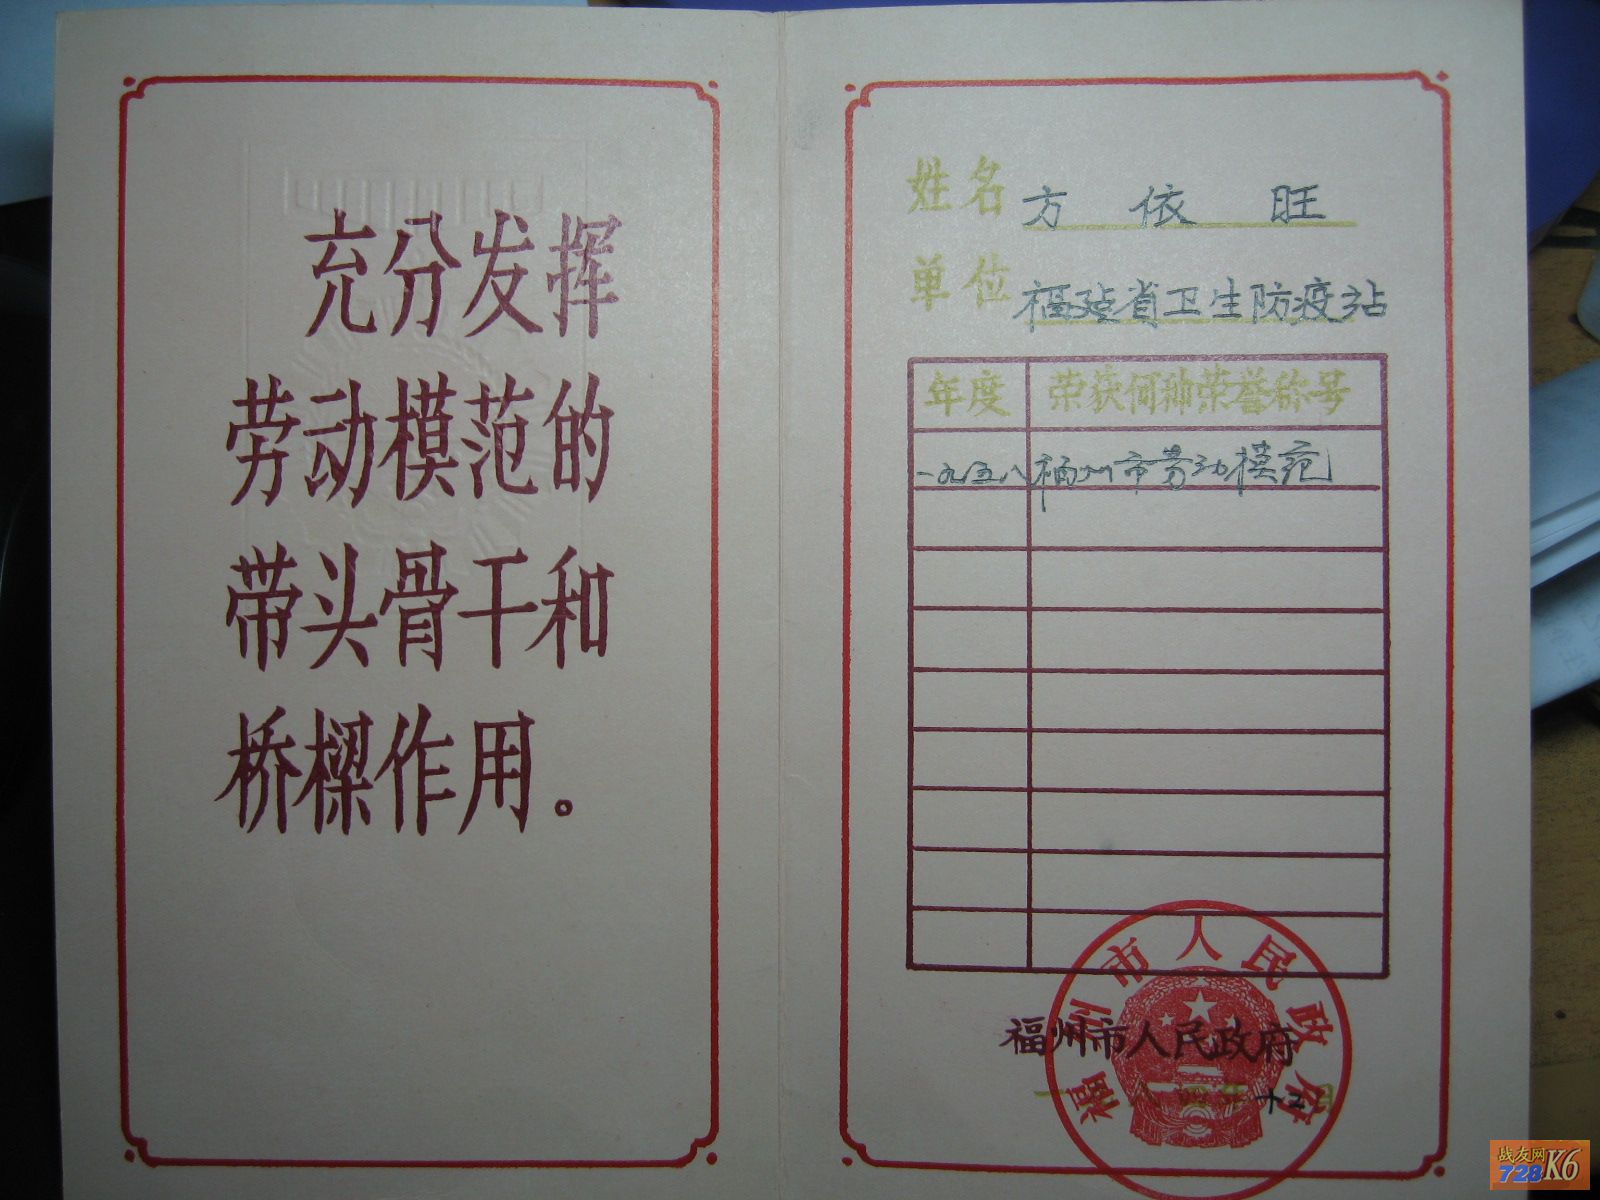 充分发挥
劳动模范的
带头骨干和
桥樑作用。
姓名 方依旺
单位 福建省卫生防疫站
年度 荣获何种荣誉称号
一九五八 福州市劳动模范
福州市人民政府
福州市人民政府
战友网
728K6